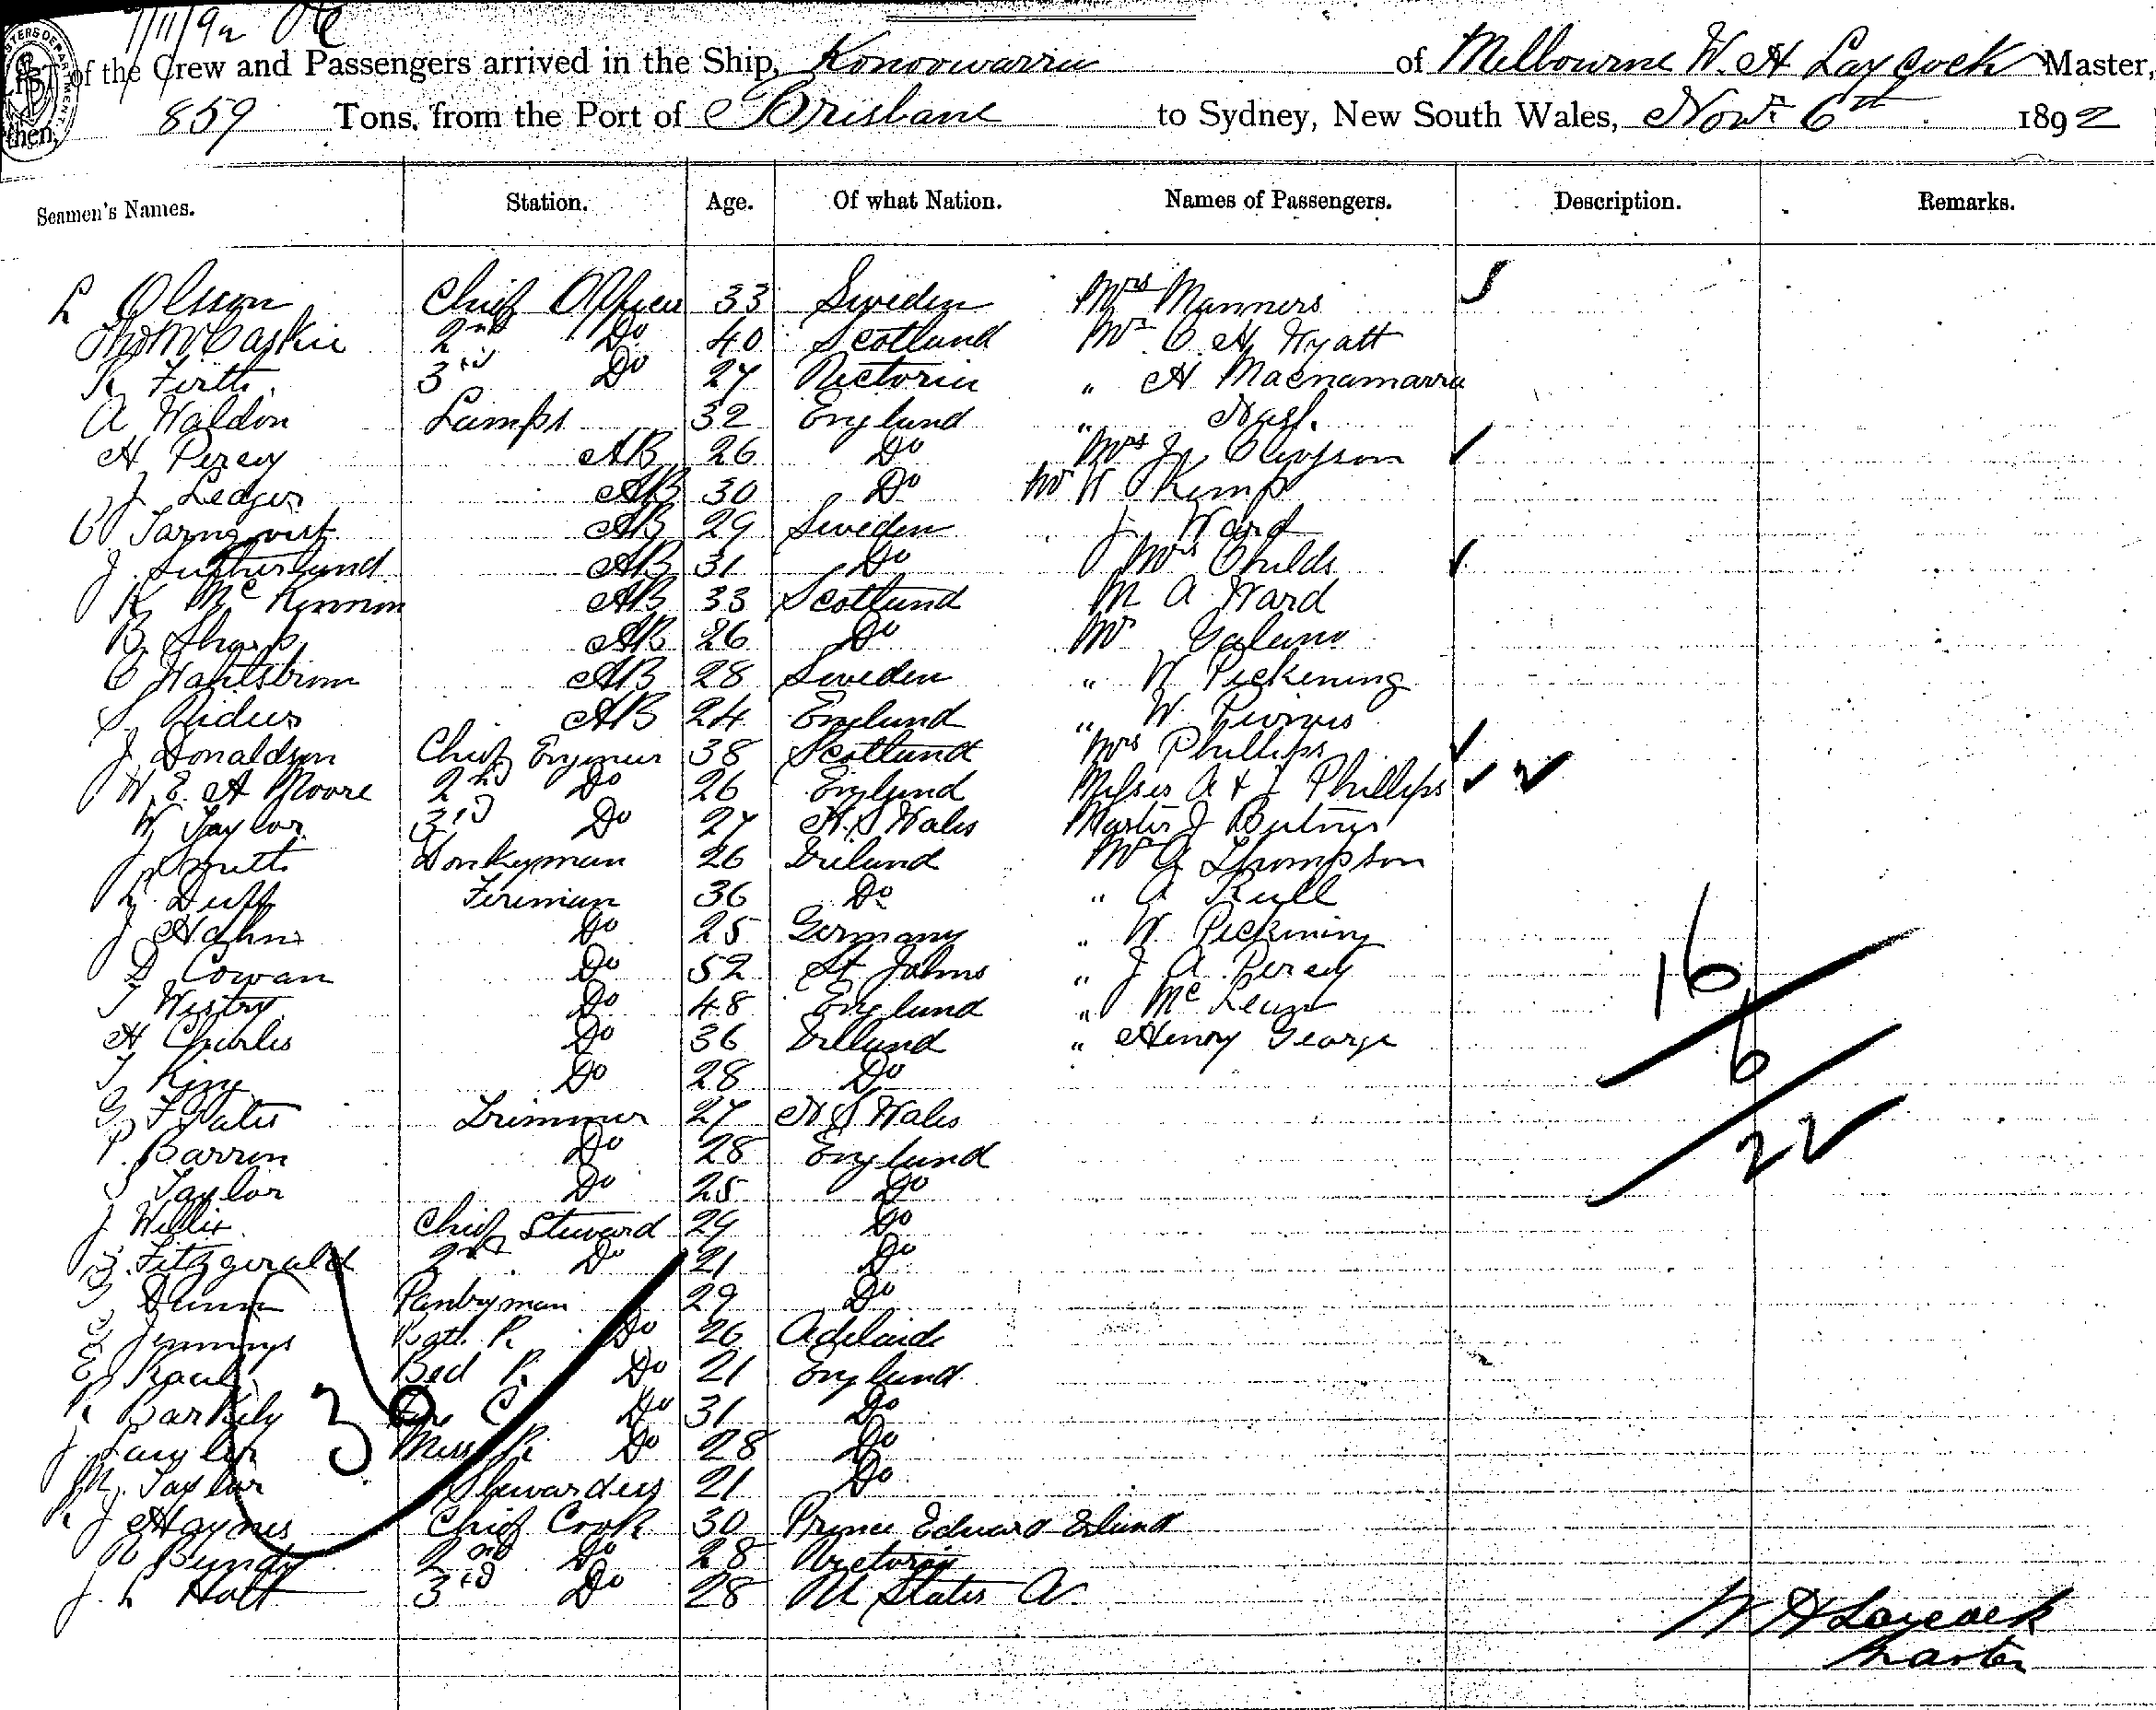 7/11/92
LIST of the Crew and Passengers arrived in the Ship, Konoowarra of Melbourne W. H Laycock Master,
then, 859 Tons, from the Port of Brisbane to Sydney, New South Wales, Novr 6th 1892
Seamen's Names. Station. Age. Of what Nation. Names of Passengers. Description. Remarks.
L Olsson Chief Officer 33 Sweden Mrs Manners
Tho McCaskie 2nd Do 40 Scotland Mr C. H. Wyatt
R Firth 3rd Do 27 Victoria " H Macnamarra
A Waldon Lamps 32 England " Nash
H Percy AB 26 Do Mrs J
J Ledger AB 30 Do Mr W Kemp
C Tarnqvist AB 29 Sweden J Ward
J. Sutherland AB 31 Do Mrs Childs
K McKinnon AB 33 Scotland M A Ward
B Sharp AB 26 Do Mr
C Wahlstrom AB 28 Sweden " W Pickening
S. AB 24 England " W.
J Donaldson Chief Engineer 38 Scotland Mrs Phillips
W. E. H Moore 2nd Do 26 England Misses A & J Phillips 2
W Taylor 3rd Do 27 N. S Wales Master J
J Smith Donkeyman 26 Ireland Mr G Thompson
L Duff Fireman 36 Do " A Rull
J Hahn Do 25 Germany " W Pickening
D Cowan Do 52 St Johns " J A Percy
T Westry Do 48 England " Mc Lean
H Charles Do 36 Ireland " Henry George
T King Do 28 Do
G F Yates Trimmer 27 N S Wales
P. Barron Do 28 England
S Taylor Do 25 Do
J Willis Chief Steward 29 Do
Fitzgerald 2nd Do 21 Do
Dunn Pantryman 29 Do
E Jennings Bath R. Do 26 Adelaide
E Bed R. Do 21 England
R Barkely Do 31 Do
J. Mess R. Do 28 Do
M. Taylor Stewardess 21 Do
R J Haynes Chief Cook 30 Prince Edward Island
R Bundy 2nd Do 28 Victoria
J. L Holt 3rd Do 28 U States A.
16
6
22
W H Laycock
Master